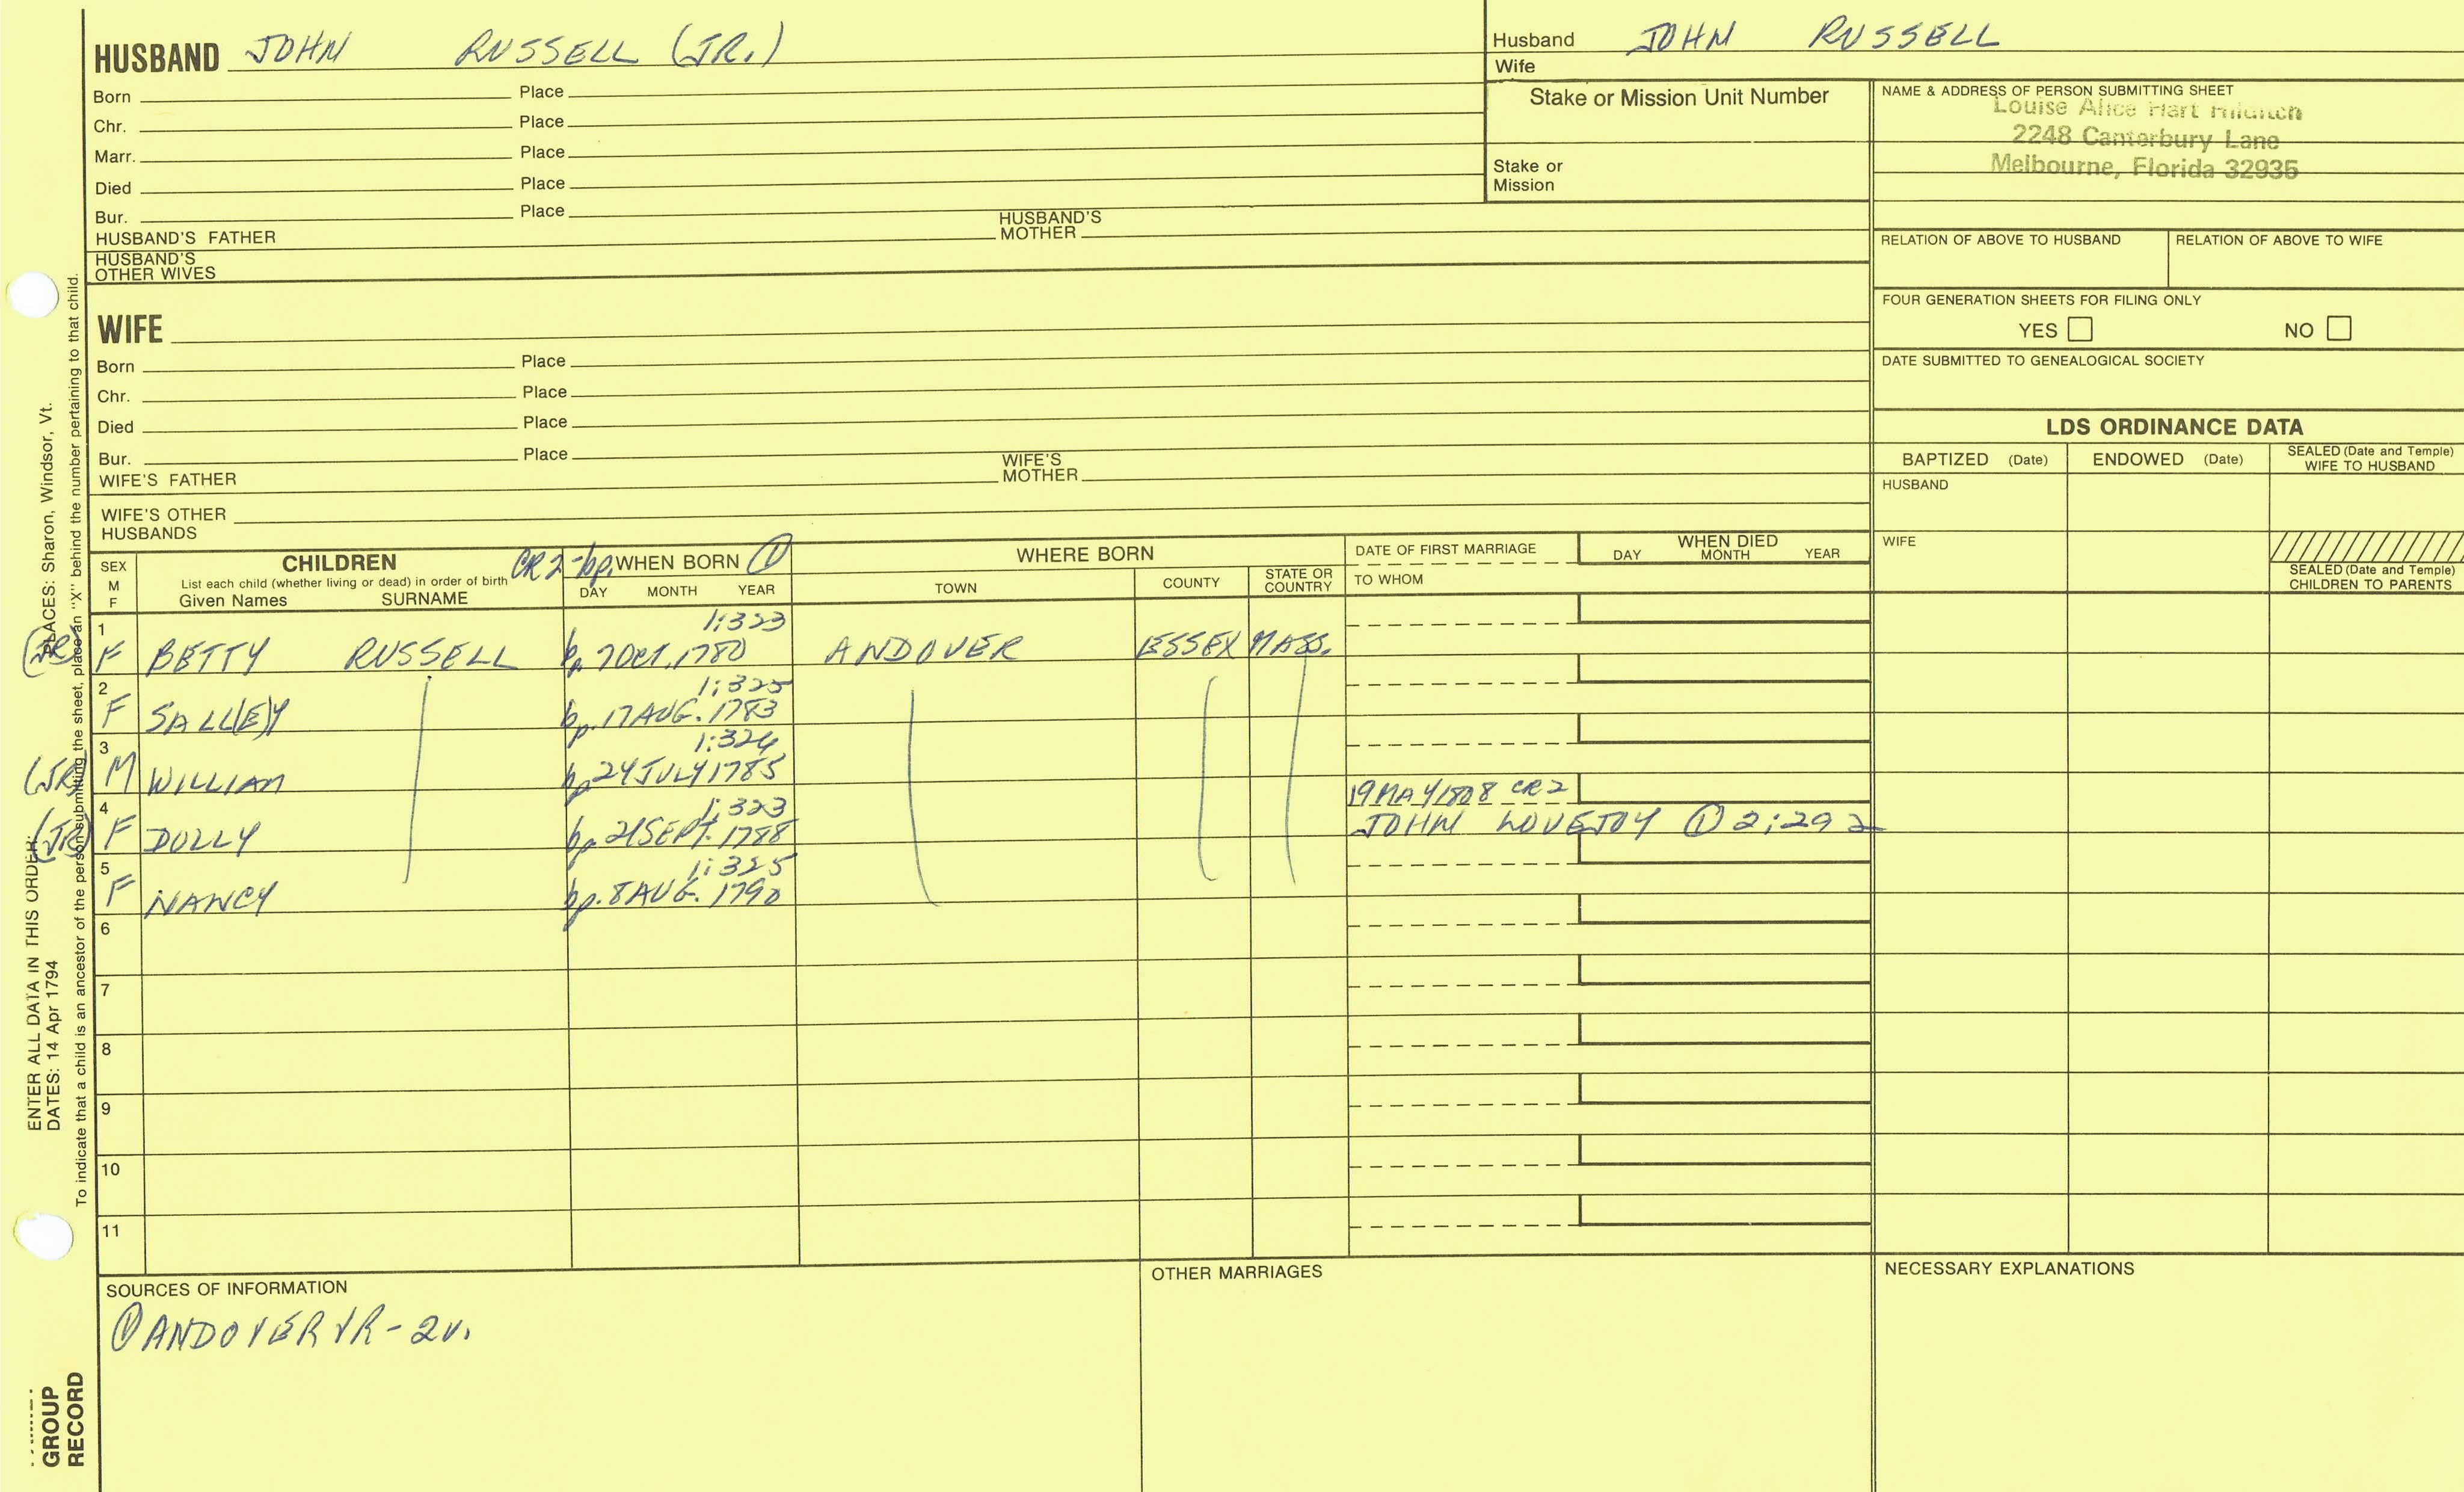 HUSBAND JOHN RUSSELL (JR.)
Born Place
Chr. Place
Marr. Place
Died Place
Bur. Place
HUSBAND'S FATHER HUSBAND'S MOTHER
HUSBAND'S OTHER WIVES
Husband JOHN RUSSELL
Wife
Stake or Mission Unit Number
Stake or Mission
NAME & ADDRESS OF PERSON SUBMITTING SHEET
Louise Alice Hart
2248 Canterbury Lane
Melbourne, Florida 32935
RELATION OF ABOVE TO HUSBAND RELATION OF ABOVE TO WIFE
FOUR GENERATION SHEETS FOR FILING ONLY
YES NO
DATE SUBMITTED TO GENEALOGICAL SOCIETY
WIFE
Born Place
Chr. Place
Died Place
Bur. Place
WIFE'S FATHER WIFE'S MOTHER
WIFE'S OTHER HUSBANDS
LDS ORDINANCE DATA
BAPTIZED (Date) ENDOWED (Date) SEALED (Date and Temple) WIFE TO HUSBAND
HUSBAND
WIFE
SEALED (Date and Temple) CHILDREN TO PARENTS
SEX M F
CHILDREN
List each child (whether living or dead) in order of birth
Given Names SURNAME
CR2-bp. WHEN BORN ①
DAY MONTH YEAR
WHERE BORN
TOWN COUNTY STATE OR COUNTRY
DATE OF FIRST MARRIAGE
TO WHOM
WHEN DIED
DAY MONTH YEAR
1 1:323
(JR) F BETTY RUSSELL bp. 7 OCT. 1780 ANDOVER ESSEX MASS.
2 1:325
F SALL(E)Y bp. 17 AUG. 1783
3 1:326
(JR) M WILLIAM bp 24 JULY 1785
4 1:323 19 MAY 1808 CR2
(JR) F DOLLY bp 21 SEPT. 1788 JOHN LOVEJOY ① 2:292
5 1:325
F NANCY bp. 8 AUG. 1790
6
7
8
9
10
11
SOURCES OF INFORMATION
① ANDOVER VR - 2v.
OTHER MARRIAGES
NECESSARY EXPLANATIONS
ENTER ALL DATA IN THIS ORDER:
DATES: 14 Apr 1794
PLACES: Sharon, Windsor, Vt.
To indicate that a child is an ancestor of the person submitting the sheet, place an "X" behind the number pertaining to that child.
GROUP
RECORD